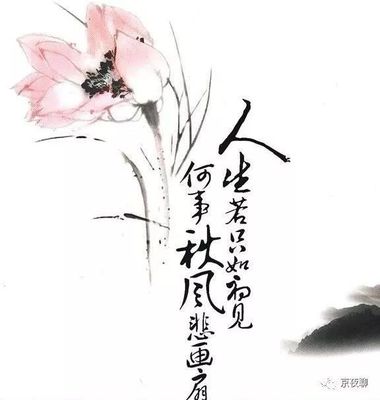 人生若只如初见
何事秋风悲画扇
京夜聊